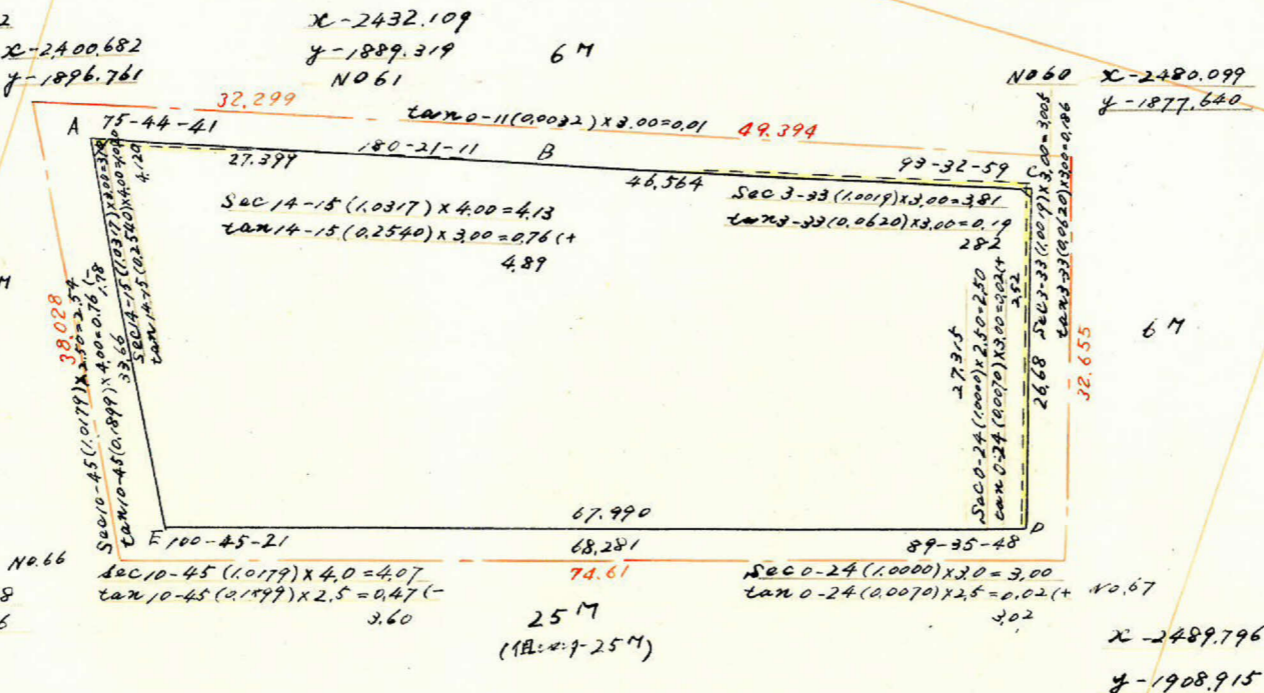 2
x-2400.682
y-1896.761
x-2432.109
y-1889.319
NO61
6M
NO60 x-2480.099
y-1877.640
32.299
tan 0-11(0.0032)×3.00=0.01
49.394
A 75-44-41
27.399
180-21-11
B
46.564
93-32-59
C
Sec 14-15(1.0317)×4.00=4.13
tan 14-15(0.2540)×3.00=0.76(+
4.89
Sec 3-33(1.0019)×3.00=3.81
tan 3-33(0.0620)×3.00=0.19
282
4.120
Sec 14-15(1.0317)×3.00=
tan 14-15(0.2540)×4.00=
33.66
38.028
Sec 10-45(1.0179)×2.50=2.54
tan 10-45(0.1899)×4.00=0.76(-
1.78
M
27.315
Sec 0-24(1.0000)×2.50=2.50
tan 0-24(0.0070)×3.00=0.02(+
2.52
26.68
Sec 3-33(1.0019)×3.00=3.005
tan 3-33(0.0620)×3.00=0.186
32.655
6M
67.990
E 100-45-21
68.281
89-35-48 D
74.61
NO.66
8
6
Sec 10-45(1.0179)×4.0=4.07
tan 10-45(0.1899)×2.5=0.47(-
3.60
25M
-25M)
Sec 0-24(1.0000)×3.0=3.00
tan 0-24(0.0070)×2.5=0.02(+
3.02
NO.67
x-2489.796
y-1908.915